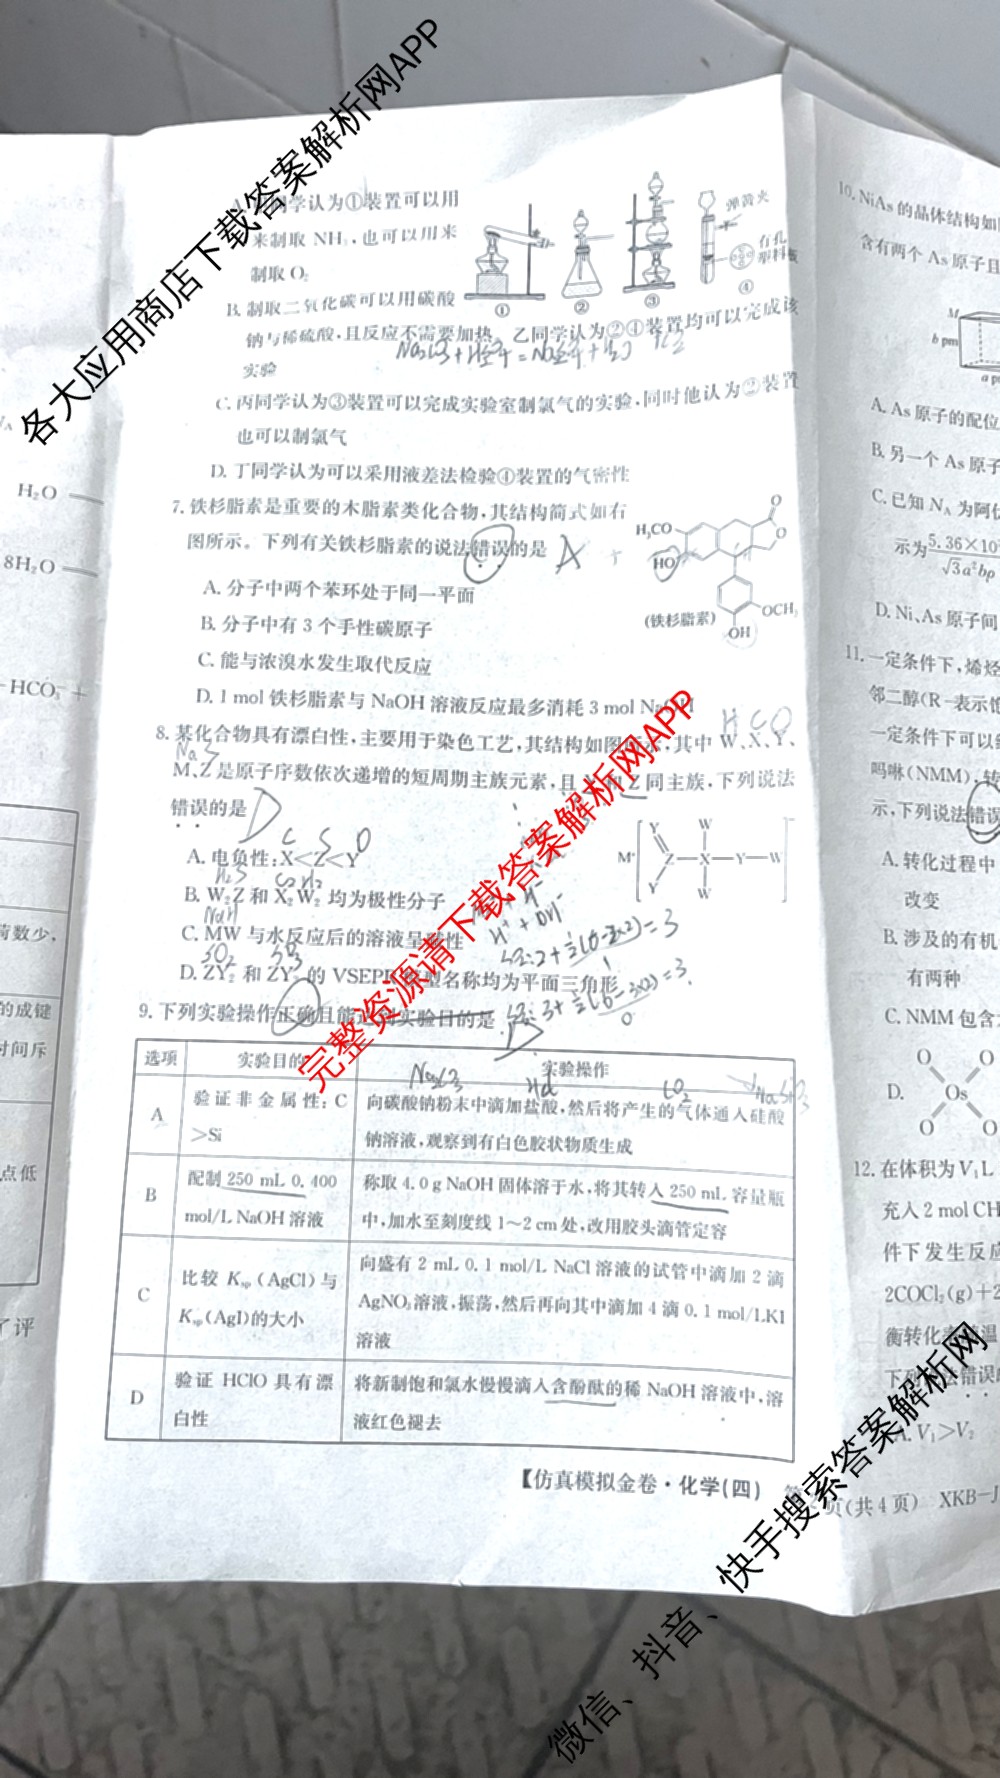 各大应用商店下载答案解析网APP
同学认为①装置可以用
来制取 NH₃,也可以用来
制取 O₂
B. 制取二氧化碳可以用碳酸
钠与稀硫酸,且反应不需要加热,乙同学认为②④装置均可以完成该
实验
弹簧夹
有孔
塑料板
① ② ③ ④
C. 丙同学认为③装置可以完成实验室制氯气的实验,同时他认为②装置
也可以制氯气
D. 丁同学认为可以采用液差法检验④装置的气密性
7. 铁杉脂素是重要的木脂素类化合物,其结构简式如右
图所示。下列有关铁杉脂素的说法错误的是 A
H₃CO
HO
O
O
OCH₃
OH
(铁杉脂素)
A. 分子中两个苯环处于同一平面
B. 分子中有 3 个手性碳原子
C. 能与浓溴水发生取代反应
D. 1 mol 铁杉脂素与 NaOH 溶液反应最多消耗 3 mol NaOH
H C O
8. 某化合物具有漂白性,主要用于染色工艺,其结构如图所示,其中 W、X、Y、
Na S
M、Z 是原子序数依次递增的短周期主族元素,且 Y 和 Z 同主族,下列说法
错误的是 D
C S O
A. 电负性:X<Z<Y
H₂S C₂H₂
B. W₂Z 和 X₂W₂ 均为极性分子
NaH
C. MW 与水反应后的溶液呈碱性
D. ZY₂ 和 ZY₃ 的 VSEPR 模型名称均为平面三角形
M⁺
Y W
Z X Y W
Y W
9. 下列实验操作正确且能达到实验目的是 D
选项 实验目的 实验操作
Na₂CO₃ HCl CO₂ Na₂SiO₃
A 验证非金属性:C>Si 向碳酸钠粉末中滴加盐酸,然后将产生的气体通入硅酸
钠溶液,观察到有白色胶状物质生成
B 配制 250 mL 0.400 mol/L NaOH 溶液 称取 4.0 g NaOH 固体溶于水,将其转入 250 mL 容量瓶
中,加水至刻度线 1~2 cm 处,改用胶头滴管定容
C 比较 Ksp(AgCl)与 Ksp(AgI)的大小 向盛有 2 mL 0.1 mol/L NaCl 溶液的试管中滴加 2 滴
AgNO₃溶液,振荡,然后再向其中滴加 4 滴 0.1 mol/LKI
溶液
D 验证 HClO 具有漂白性 将新制饱和氯水慢慢滴入含酚酞的稀 NaOH 溶液中,溶
液红色褪去
【仿真模拟金卷·化学(四) 页(共 4 页) XKB-J
完整资源请下载答案解析网APP
H₂O
8H₂O
HCO₃⁻ +
荷数少,
的成键
时间斥
点低
了评
10. NiAs 的晶体结构如
含有两个 As 原子且
M
b pm
a p
A. As 原子的配位
B. 另一个 As 原子
C. 已知 NA 为阿伏
示为 5.36×10
√3a²bρ
D. Ni、As 原子间
11. 一定条件下,烯烃
邻二醇(R-表示饱
一定条件下可以
吗啉(NMM),转
示,下列说法错误
A. 转化过程中
改变
B. 涉及的有机
有两种
C. NMM 包含
D.
O O
Os
O O
12. 在体积为 V₁ L
充入 2 mol CH
件下发生反应
2COCl₂(g)+2
衡转化率
A. V₁>V₂
快手搜索答案解析网
微信、抖音、